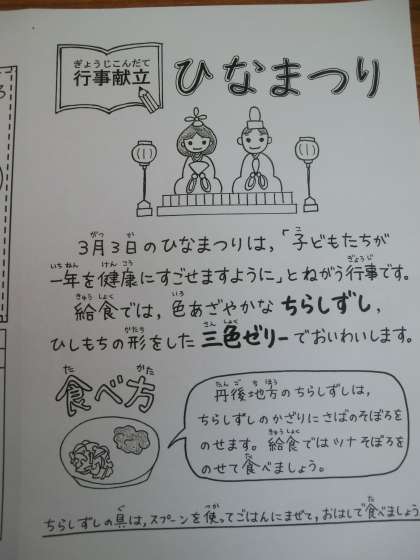 ぎょうじこんだて
行事献立
ひなまつり
3月3日のひなまつりは,「子どもたちが
一年を健康にすごせますように」とねがう行事です。
給食では,色あざやかなちらしずし,
ひしもちの形をした三色ゼリーでおいわいします。
食べ方
丹後地方のちらしずしは,
ちらしずしのかざりにさばのそぼろを
のせます。給食ではツナそぼろを
のせて食べましょう。
ちらしずしの具は,スプーンを使ってごはんにまぜて,おはしで食べましょう